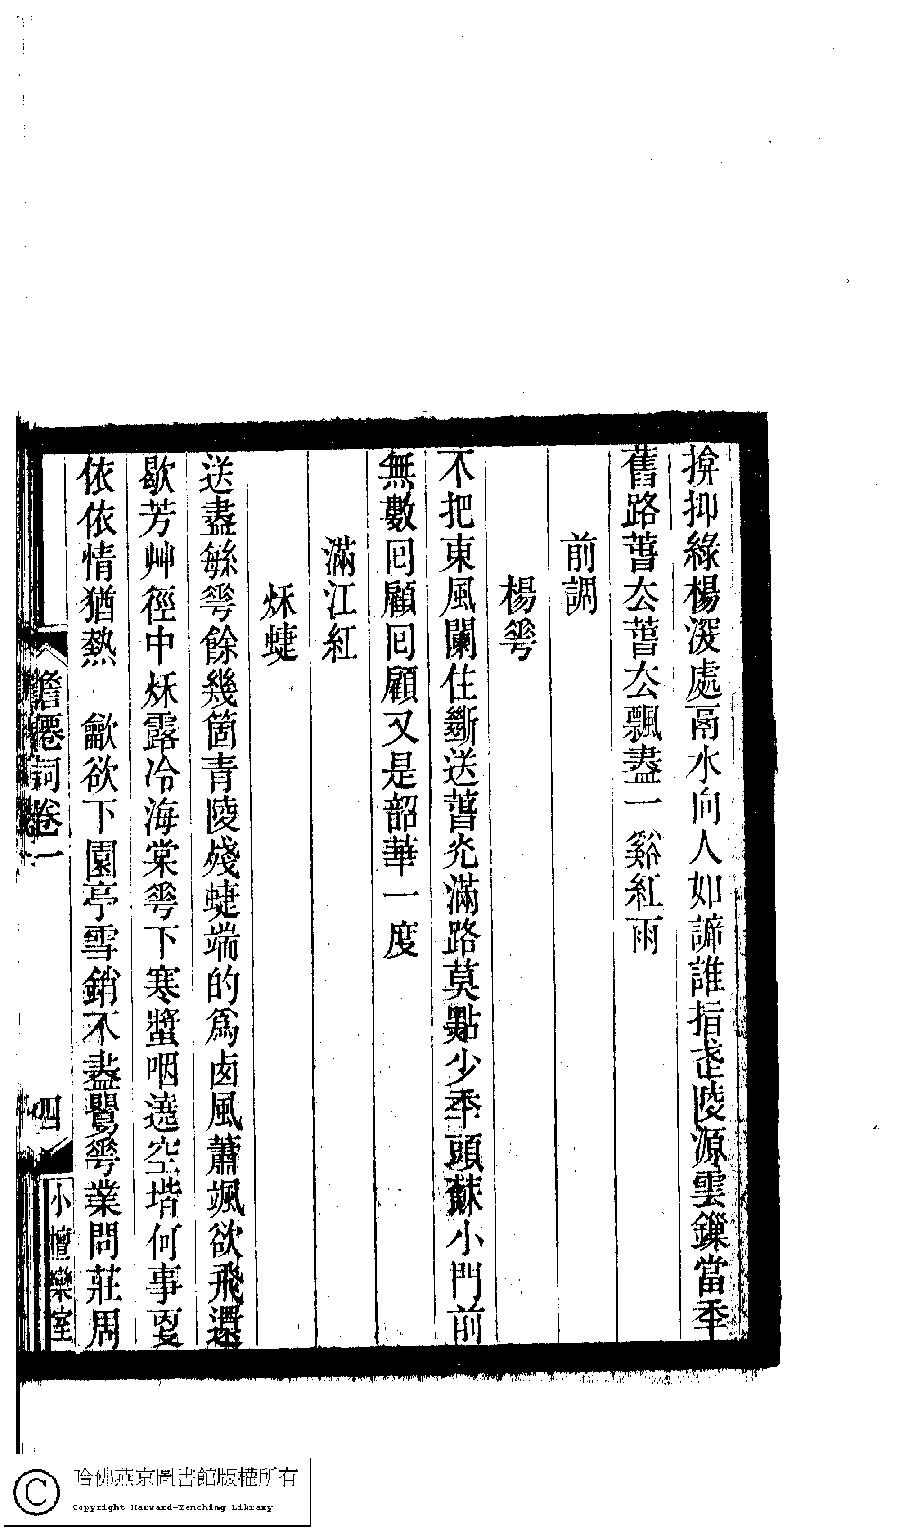 揜抑綠楊㴱處鬲水向人如諦誰指武陵源雲鏁當秊
舊路萅厺萅厺飄盡一谿紅雨
前調
楊𠌶
不把東風闌住斷送萅炗滿路莫點少秊頭蘇小門前
無數囘顧囘顧又是韶華一度
滿江紅
秌蜨
送盡緐𠌶餘幾箇青陵殘蜨端的爲卥風蕭颯欲飛還
歇芳艸徑中秌露冷海棠𠌶下寒螿咽遶空堦何事叓
依依情猶熱 歙欲下園亭雪銷不盡鸎𠌶業問莊周
僊詞卷一
四
小檀欒室
哈佛燕京圖書館版權所有
Copyright Harvard-Yenching Library